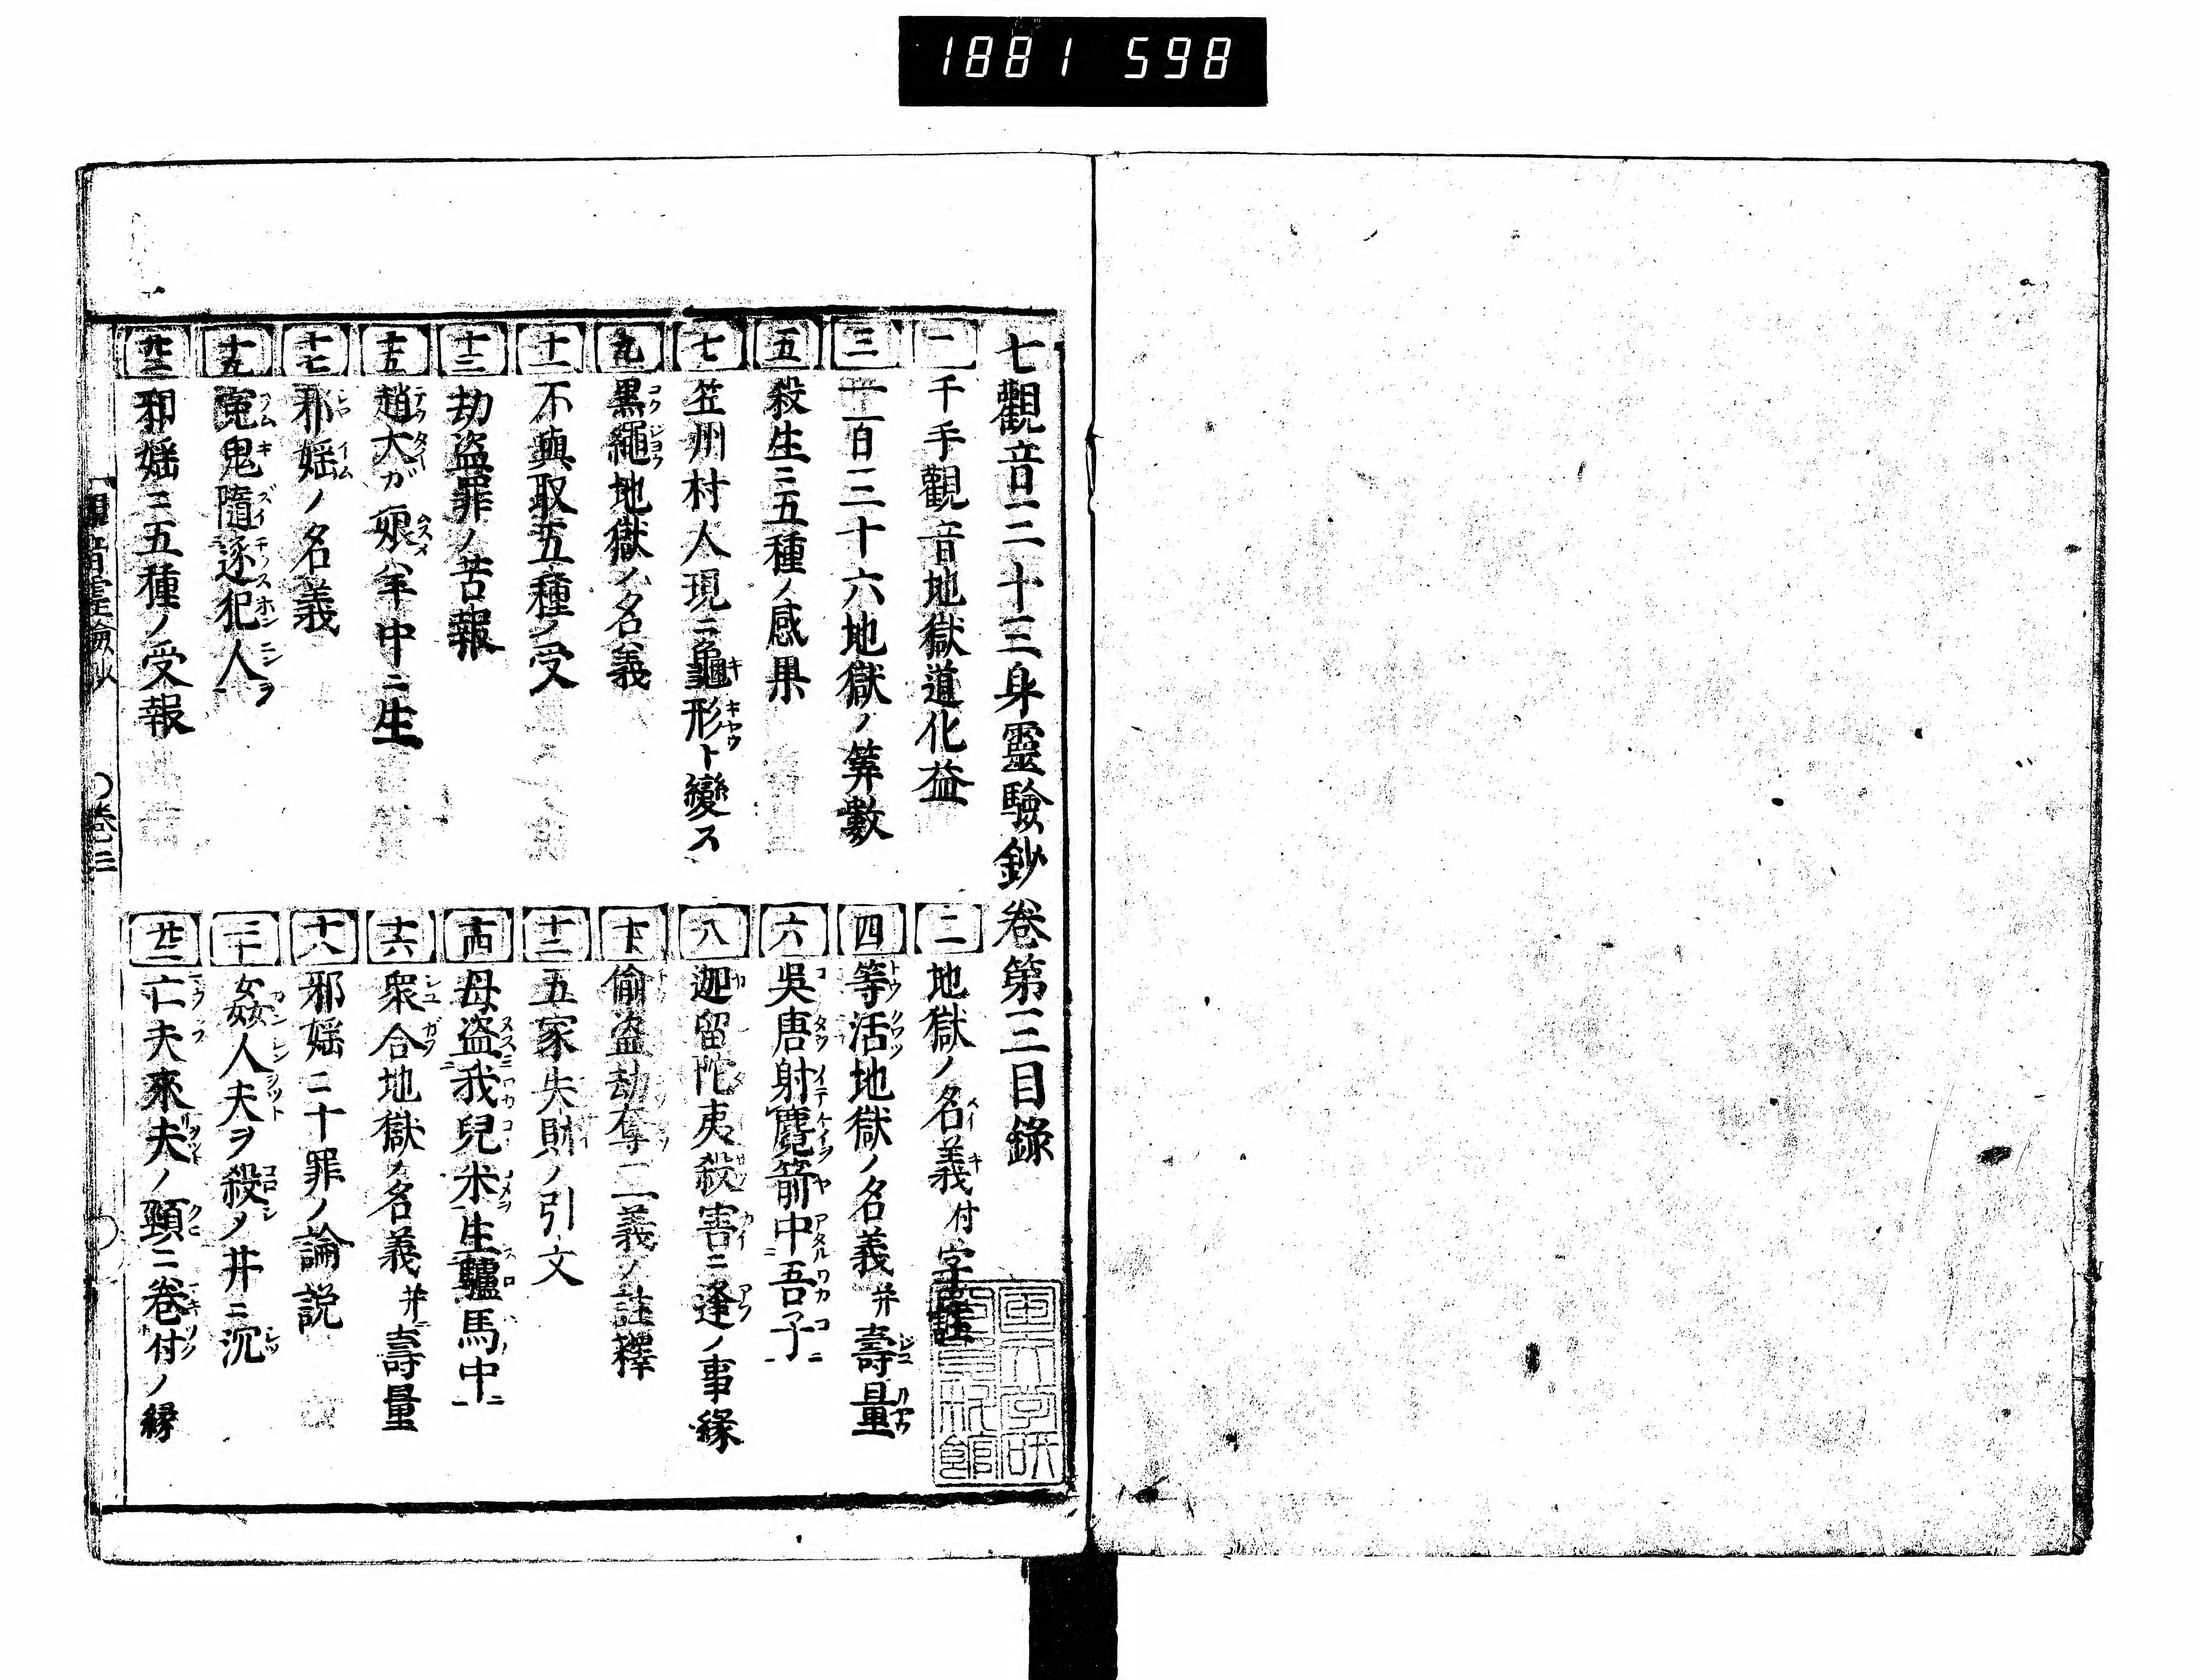 1881 598
七觀音三十三身靈驗鈔卷第三目錄
一 千手觀音地獄道化益
二 地獄ノ名義付字註
三 一百三十六地獄ノ筭數
四 等活地獄ノ名義并壽量
五 殺生ニ五種ノ感果
六 吳唐射麑箭中吾子
七 笠州村人現ニ龜形ト變ス
八 迦留陀夷殺害ニ逢ノ事緣
九 黒繩地獄ノ名義
十 偷盗劫奪二義ノ註釋
十一 不與取五種ノ受
十二 五家失財ノ引文
十三 劫盗罪ノ苦報
十四 母盗我兒米生驢馬中
十五 趙大ガ娘羊中ニ生
十六 衆合地獄ノ名義并壽量
十七 邪婬ノ名義
十八 邪婬ニ十罪ノ論説
十九 寃鬼隨逐犯人
二十 姦人夫ヲ殺ノ井ニ沉
廿一 邪婬ニ五種ノ受報
廿二 亡夫來夫ノ頸ニ卷付ノ縁
觀音靈驗鈔 卷三